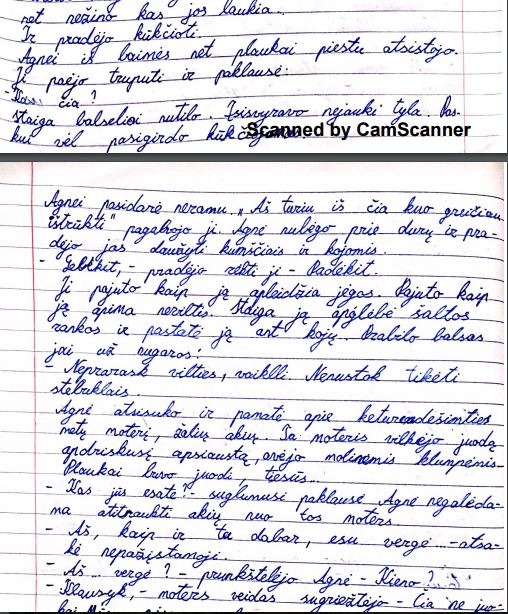 net nežino kas jos laukia...
Ir pradėjo kūkčioti.
Agnei iš baimės net plaukai piestu atsistojo.
Ji paėjo truputi ir paklausė:
Kas čia?
Staiga balseliai nutilo. Įsivyravo nejauki tyla. Pas-
kui vėl pasigirdo
Scanned by CamScanner
Agnei pasidarė neramu. „Aš turiu iš čia kuo greičiau
ištrūkti" pagalvojo ji. Agnė nubėgo prie durų ir pra-
dėjo jas daužyti kumščiais ir kojomis.
- Gelbkit, - pradėjo rėkti ji - Padėkit.
Ji pajuto kaip ją apleidžia jėgos. Pajuto kaip
ją apima neviltis. Staiga ją apglėbė šaltos
rankos ir pastatė ją ant kojų. Prabilo balsas
jai už nugaros:
- Neprarask vilties, vaikeli. Nenustok tikėti
stebuklais.
Agnė atsisuko ir pamatė apie keturiasdešimties
metų moterį, žalių akių. Ta moteris vilkėjo juodą
apdriskusį apsiaustą, avėjo molinėmis klumpėmis.
Plaukai buvo juodi tiesūs...
- Kas jūs esate? - suglumusi paklausė Agnė negalėda-
ma atitraukti akių nuo tos moters.
- Aš, kaip ir tu dabar, esu vergė... - atsa-
kė nepažįstamoji.
- Aš... vergė? - prunkštelėjo Agnė - Kieno?
- Klausyk, - moters veidas sugriežtėjo - Čia ne juo-